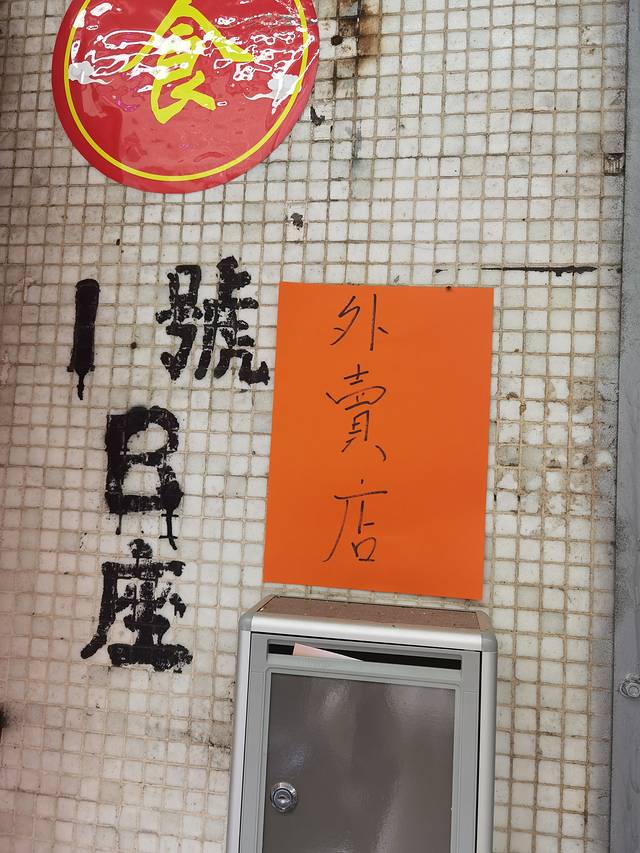 食
1號
B座
外賣店